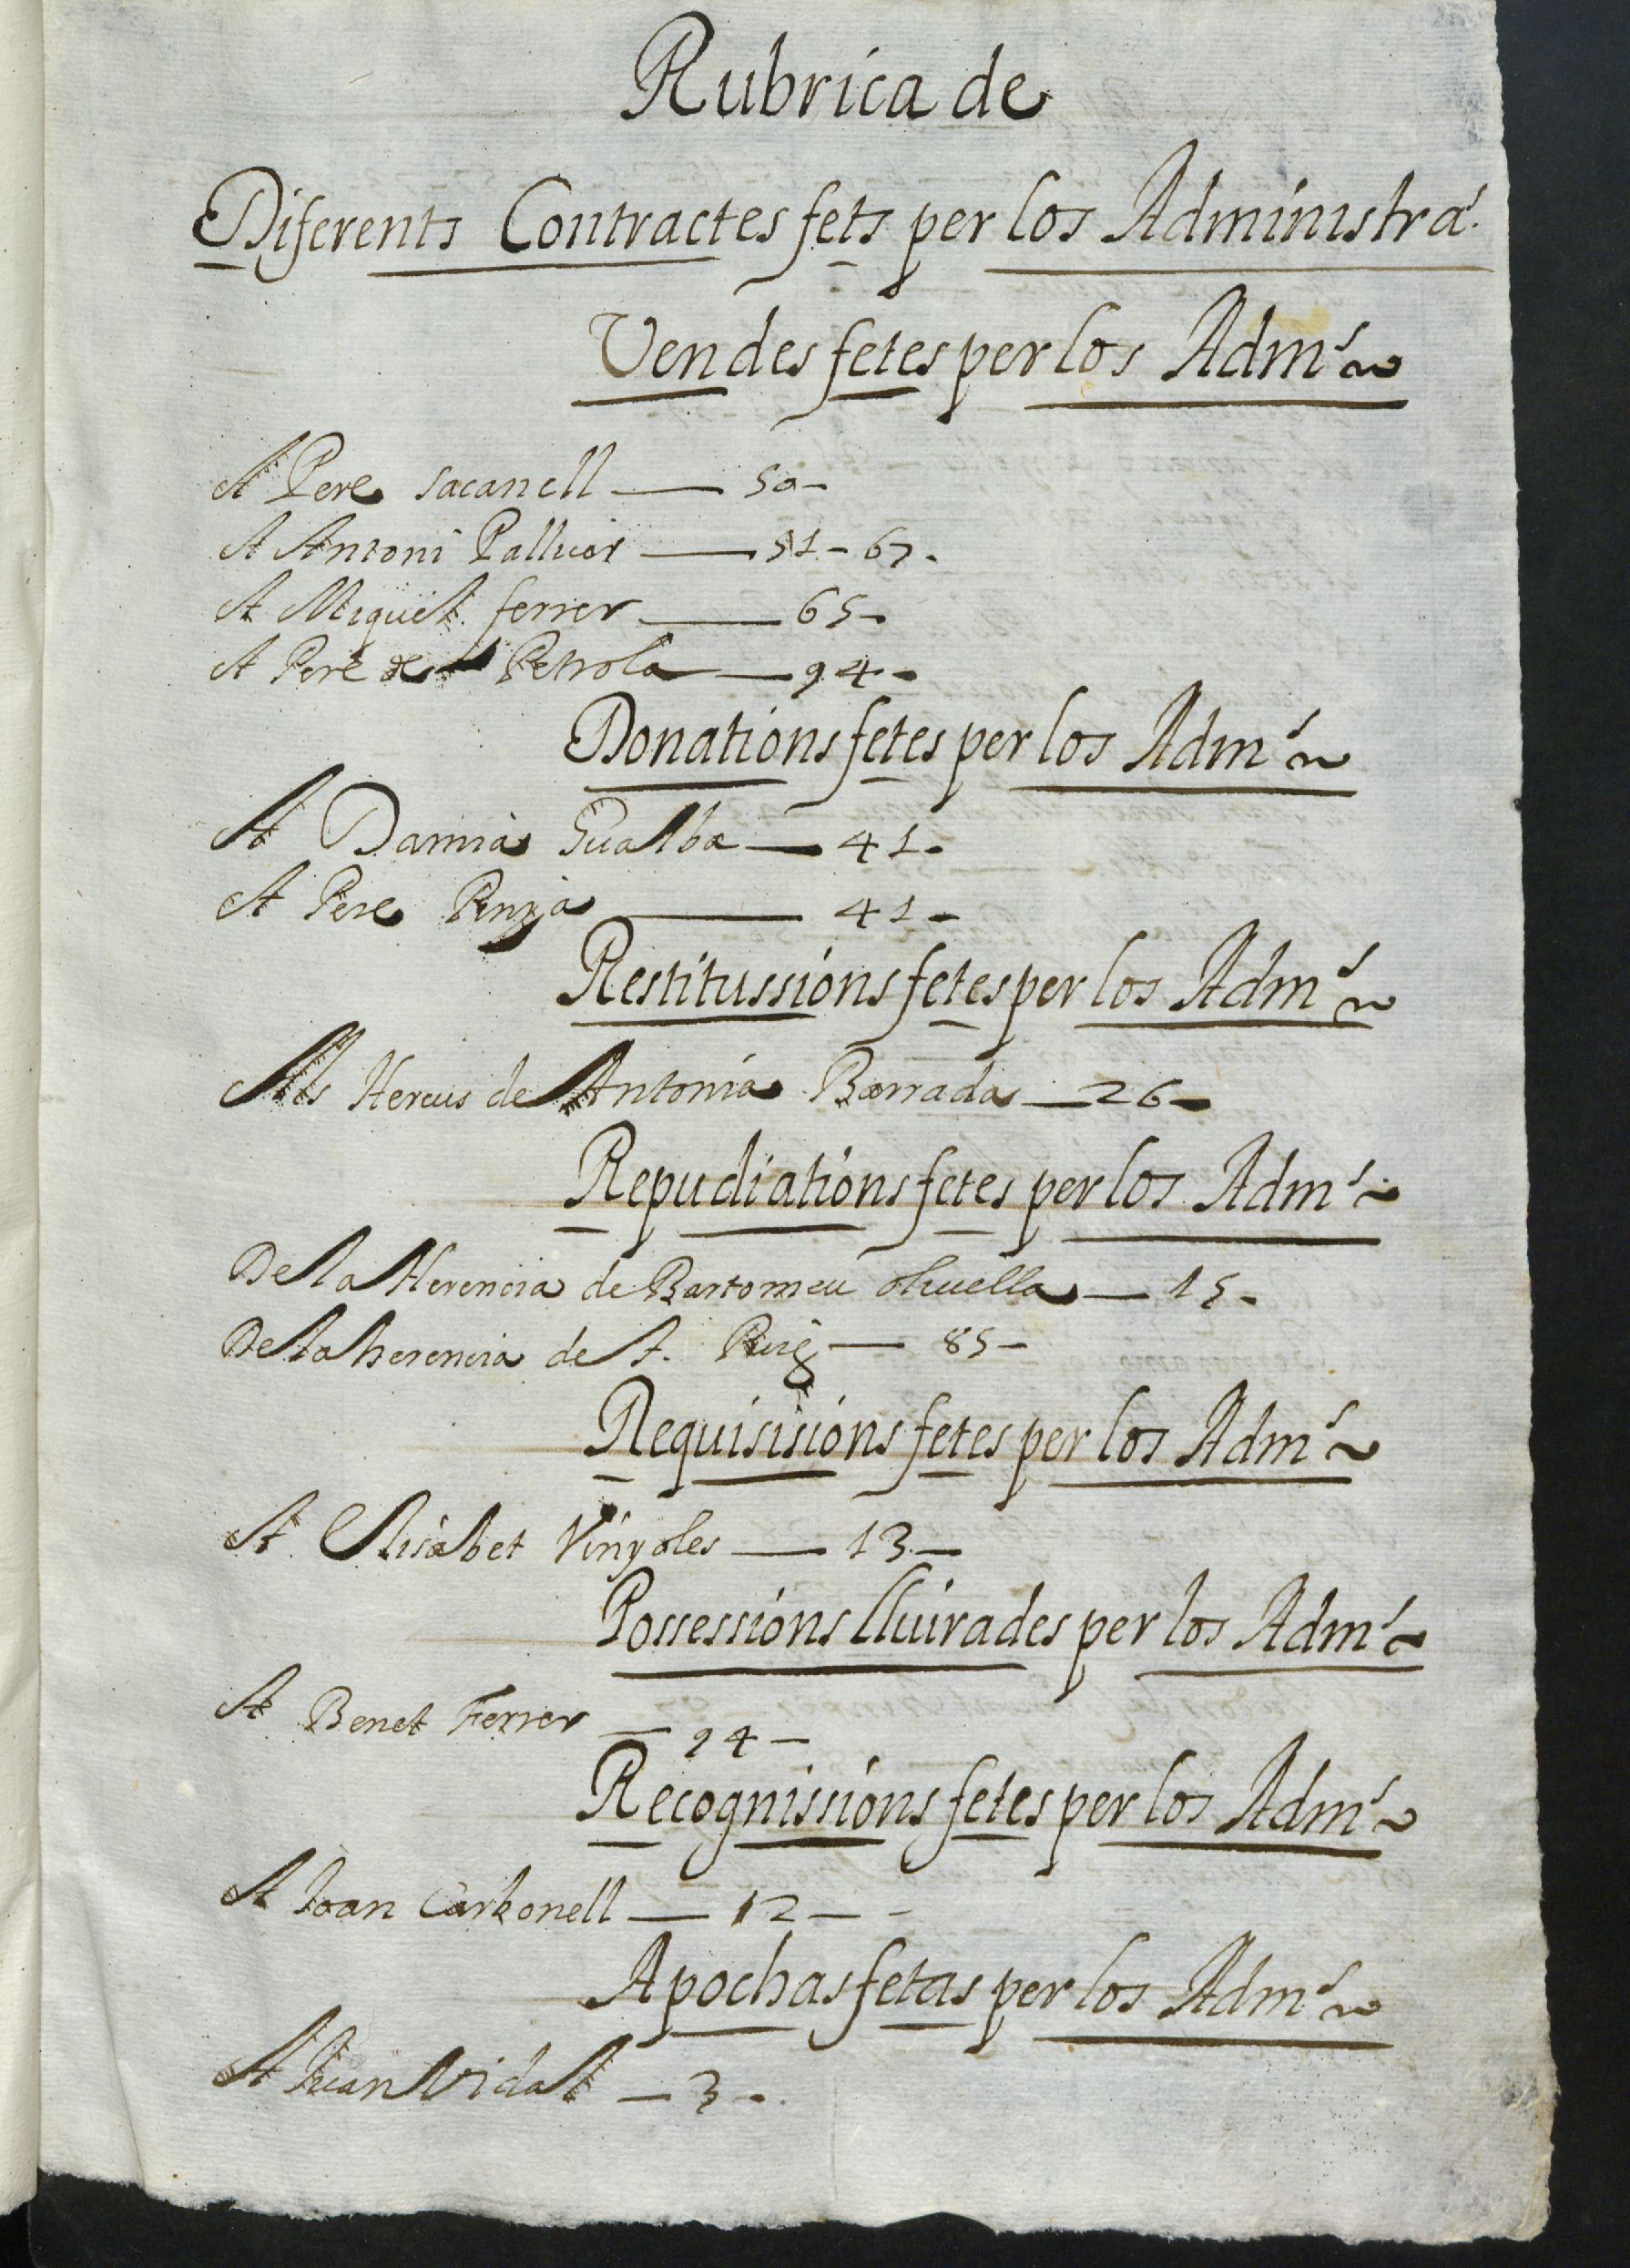 Rubrica de
Diferents Contractes fets per los Administra.
Vendes fetes per los Adm.s
A Pere sacanell — 50 -
A Antoni — 51 - 67 -
A Miquel ferrer — 65 -
A Pere Petrola — 94 -
Donations fetes per los Adm.s
A Damia Gualba — 41 -
A Pere — 41 -
Restitussions fetes per los Adm.s
Als Hereus de Antonia Barrada — 26 -
Repudiations fetes per los Adm.s
De la Herencia de Bartomeu oluella — 15 -
De la herencia de A. Puig — 85 -
Requisisions fetes per los Adm.s
A Elisabet Vinyoles — 13 -
Possessions lliuirades per los Adm.s
A Benet Ferrer — 94 -
Recognissions fetes per los Adm.s
A Joan Carbonell — 12 - -
Apochas fetas per los Adm.s
A Juan Vidal — 3 -